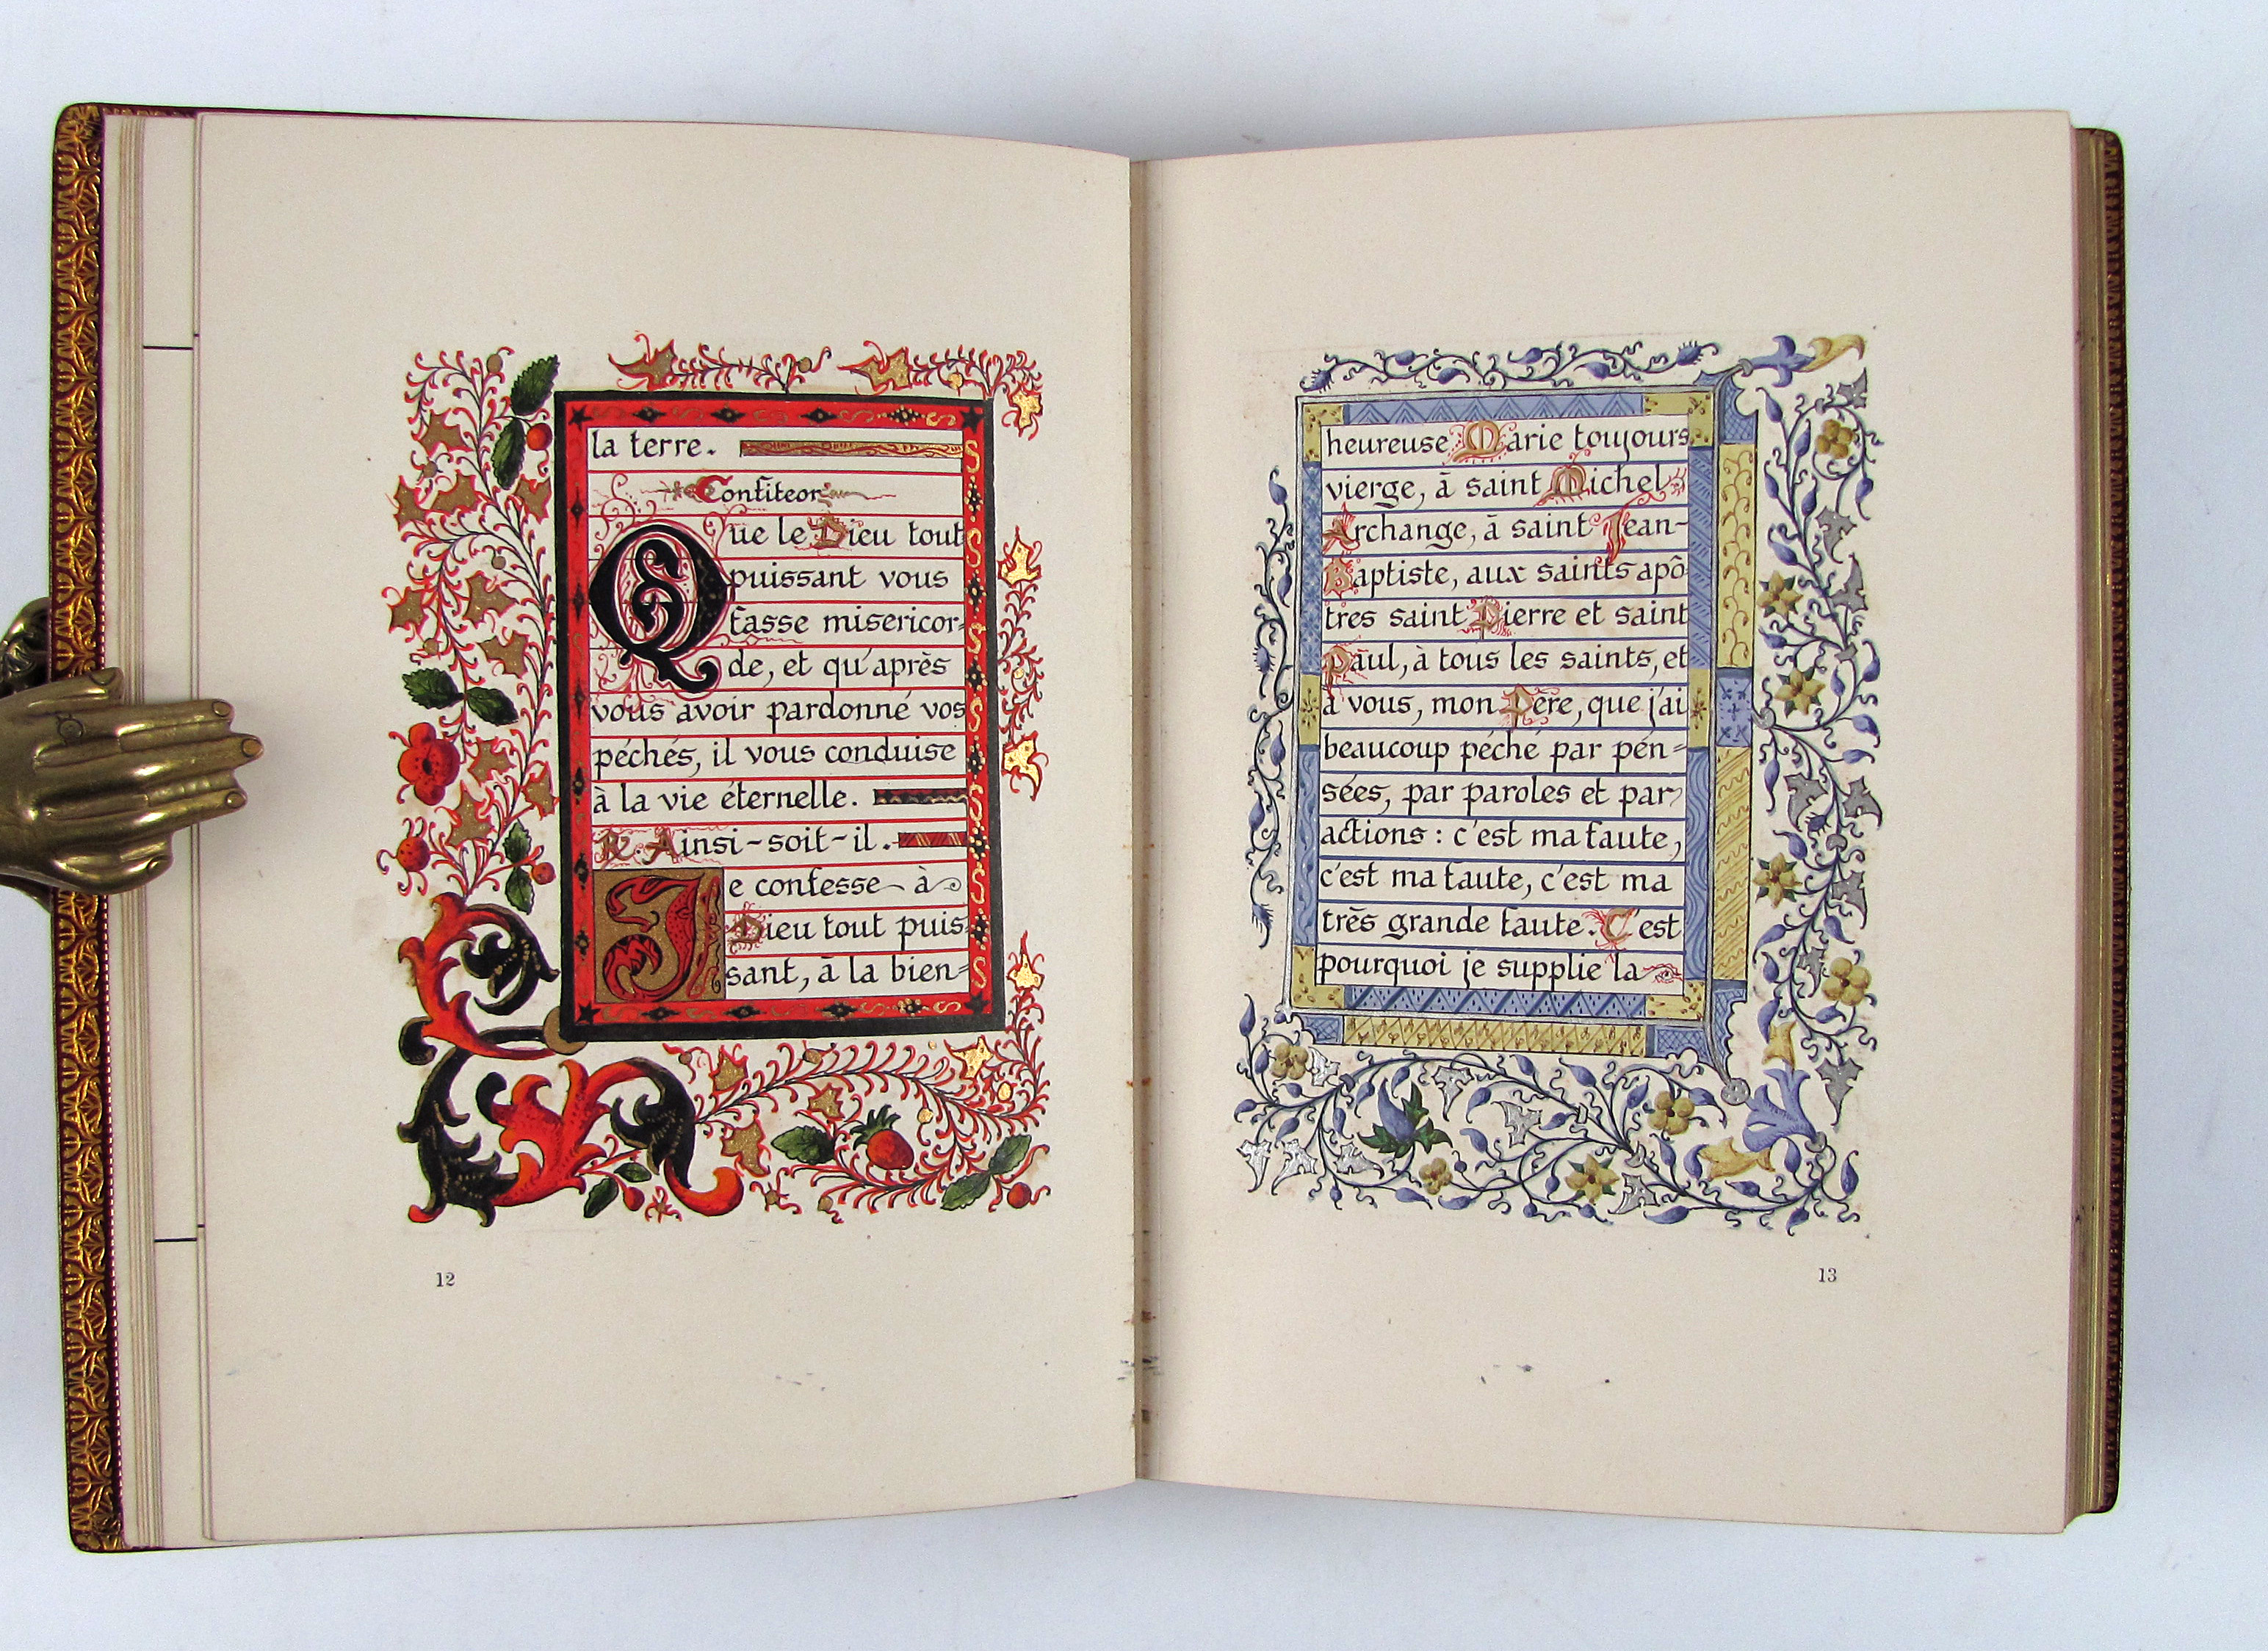 la terre.
Confiteor
Que le Dieu tout
puissant vous
fasse misericor-
de, et qu'après
vous avoir pardonné vos
péchés, il vous conduise
à la vie éternelle.
R. Ainsi-soit-il.
Je confesse à
Dieu tout puis-
sant, à la bien-
12
heureuse Marie toujours
vierge, à saint Michel
Archange, à saint Jean-
Baptiste, aux saints apô-
tres saint Pierre et saint
Paul, à tous les saints, et
à vous, mon Père, que j'ai
beaucoup péché par pen-
sées, par paroles et par
actions : c'est ma faute,
c'est ma faute, c'est ma
très grande faute. C'est
pourquoi je supplie la
13